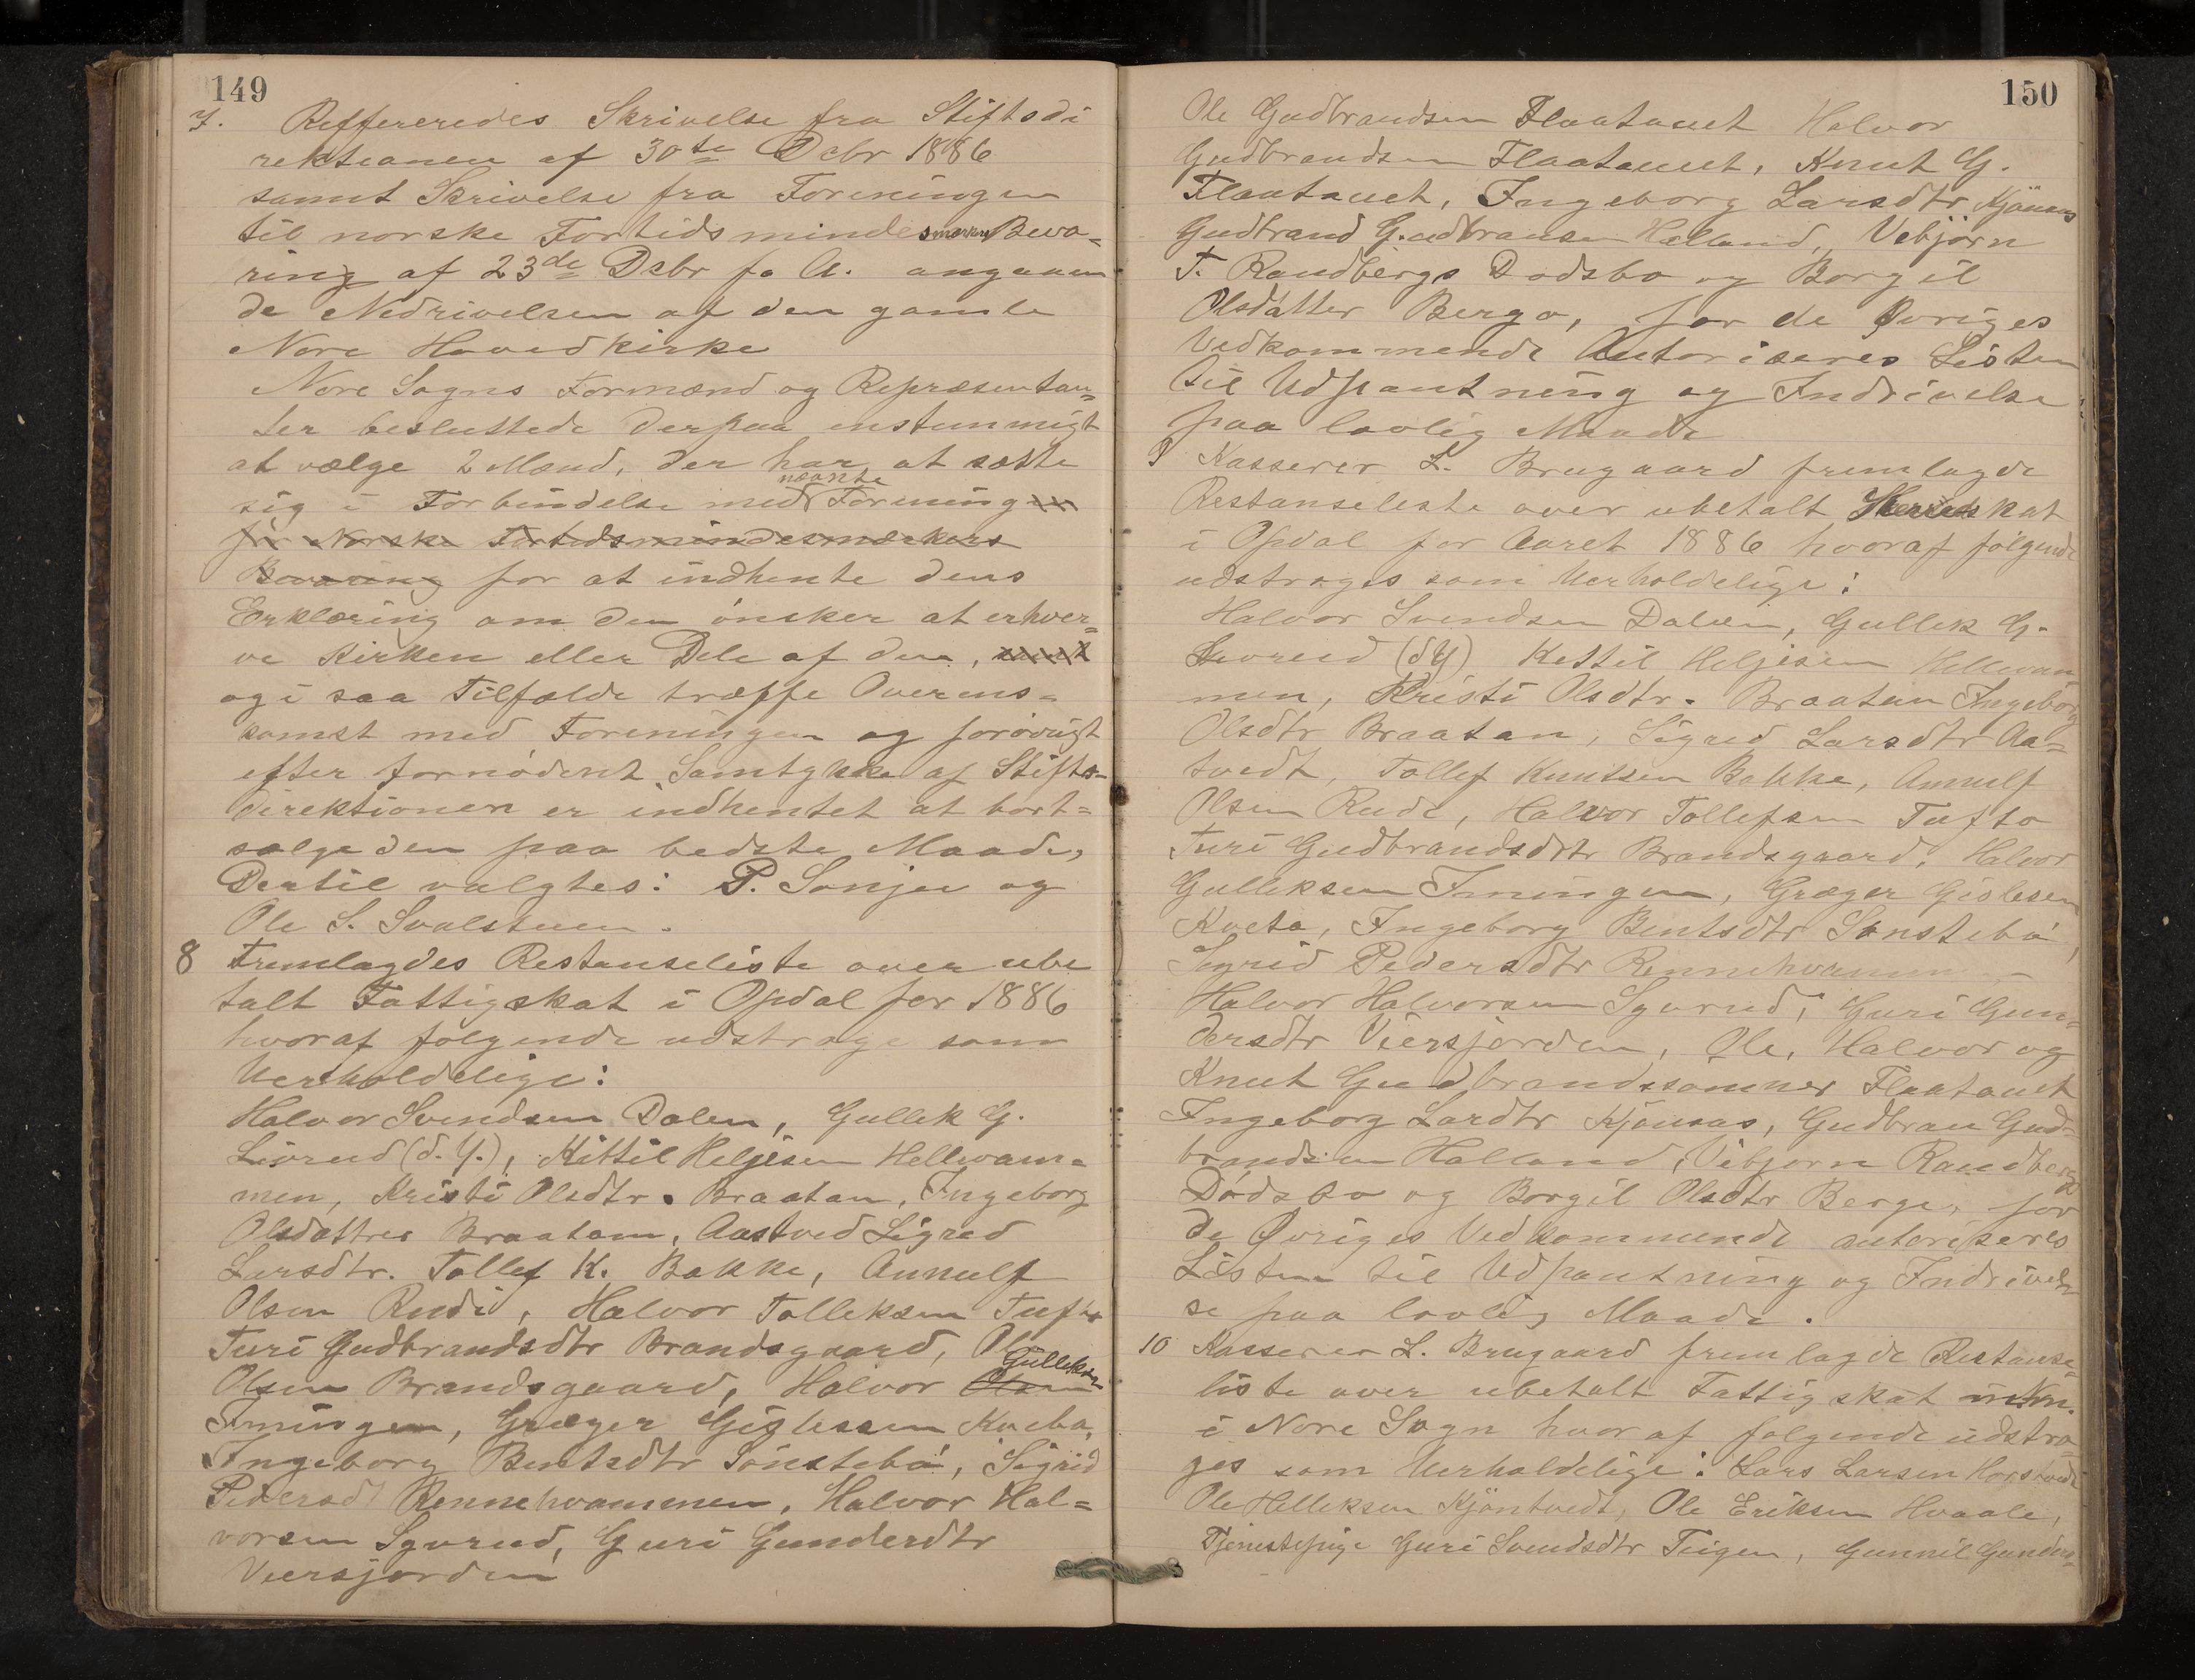 149
7. Reffereredes Skrivelse fra Stiftsdi
rektionen af 30te Debr 1886
samt Skrivelse fra Foreningen
til norske Fortidsmindesmerkers Beva-
ring af 23de Debr f. A. angaaen
de Nedrivelsen af den gamle
Nore Hovedkirke
Nore Sogns Formænd og Repræsentan=
ter besluttede derpaa enstemmigt
at vælge 2 Mænd, der har at sætte
nævnte
sig i Forbindelse med Foreningen
for Norske Fortidsmindesmærkers
Bevaring for at indhente dens
Erklæring om den ønsker at erhver=
ve Kirken eller Dele af den, samt
og i saa Tilfælde træffe Overens=
komst med Foreningen og forøvrigt
efter fornødent Samtykke af Stifts-
direktionen er indhentet at bort=
sælge den paa bedste Maade,
Dertil valgtes: P. Sønjer og
Ole S. Svalsteen.
8 Fremlagdes Restanseliste over ube
talt Fattigskat i Opdal for 1886
hvoraf følgende udstroge som
Uerholdelige:
Halvor Svendsen Dalen, Gullek G.
Livrud (d.Y.), Kittil Heljesen Hellevam=
men, Kristi Olsdtr. Braatan, Ingeborg
Olsdatter Braatan, Aastved Sigred
Larsdtr. Tollef K. Bakke, Annulf
Olsen Rudi, Halvor Tolleksen Tufto
Turi Gudbrandsdtr Brandsgaard, Ole
Gulleksen
Olsen Brandsgaard, Halvor Olsen
Imingen, Græger Gislesen Kveta,
Ingeborg Bentsdtr Sønstebø, Sigrid
Pedersd Rennehvammen, Halvor Hal=
vorsen Sgvrud, Guri Gunderdtr
Viersjorden
150
Ole Gudbrandsen Flaatauet Halvor
Gudbrandsen Flaatauet, Knut G.
Flaatauet, Ingeborg Larsdtr Kjønaas
Gudbrand Gudbransen Halland, Vebjørn
T. Raudbergs Dødsbo og Borgil
Olsdatter Berga, for de Øvriges
Vedkommende Autoriseres Listen
til Udpantning og Inddrivelse
paa lovlig Maade
9 Kasserer L. Brugaard fremlagde
Restanseliste over ubetalt Herredskat
i Opdal for Aaret 1886 hvoraf følgende
udstroges som Uerholdelige:
Halvor Svendsen Dalen, Gullek G.
Livrud (d Y) Kettil Heljesen Hellevam
men, Kristi Olsdtr. Braatan Ingeborg
Olsdtr Braatan, Sigred Larsdtr Aa=
tvedt, Tollef Knutsen Bakke, Annulf
Olsen Rudi, Halvor Tollefsen Tufto
Turi Gudbrandsdtr Brandsgaard, Halvor
Gulleksen Imingen, Græger Gislesen
Kveta, Ingeborg Bentsdtr Sønstebø,
Sigrid Pedersdtr Rennehvammen
Halvor Halvorsen Sgvrud, Guri Gun=
dersdtr Viersjorden, Ole, Halvor og
Knut Gudbrandssønner Flaatauet
Ingeborg Lardtr Kjønaas, Gudbran Gud=
brandsen Halland, Vibjørn Raudbergs
Dødsbo og Borgil Olsdtr Berge, for
de Øvriges Vedkommende autoriseres
Listen til Udpantning og Inddrivel
se paa lovlig Maade.
10 Kasserer L. Brugaard fremlagde Restanse=
liste over ubetalt Fattigskat
i Nore Sogn hvoraf følgende udstro
ges som Uerholdelige: Lars Larsen Horstvedt
Ole Helleksen Kjøntvedt, Ole Eriksen Hvaale,
Tjenestepige Guri Svendsdtr Teigen, Gunnil Gunders=